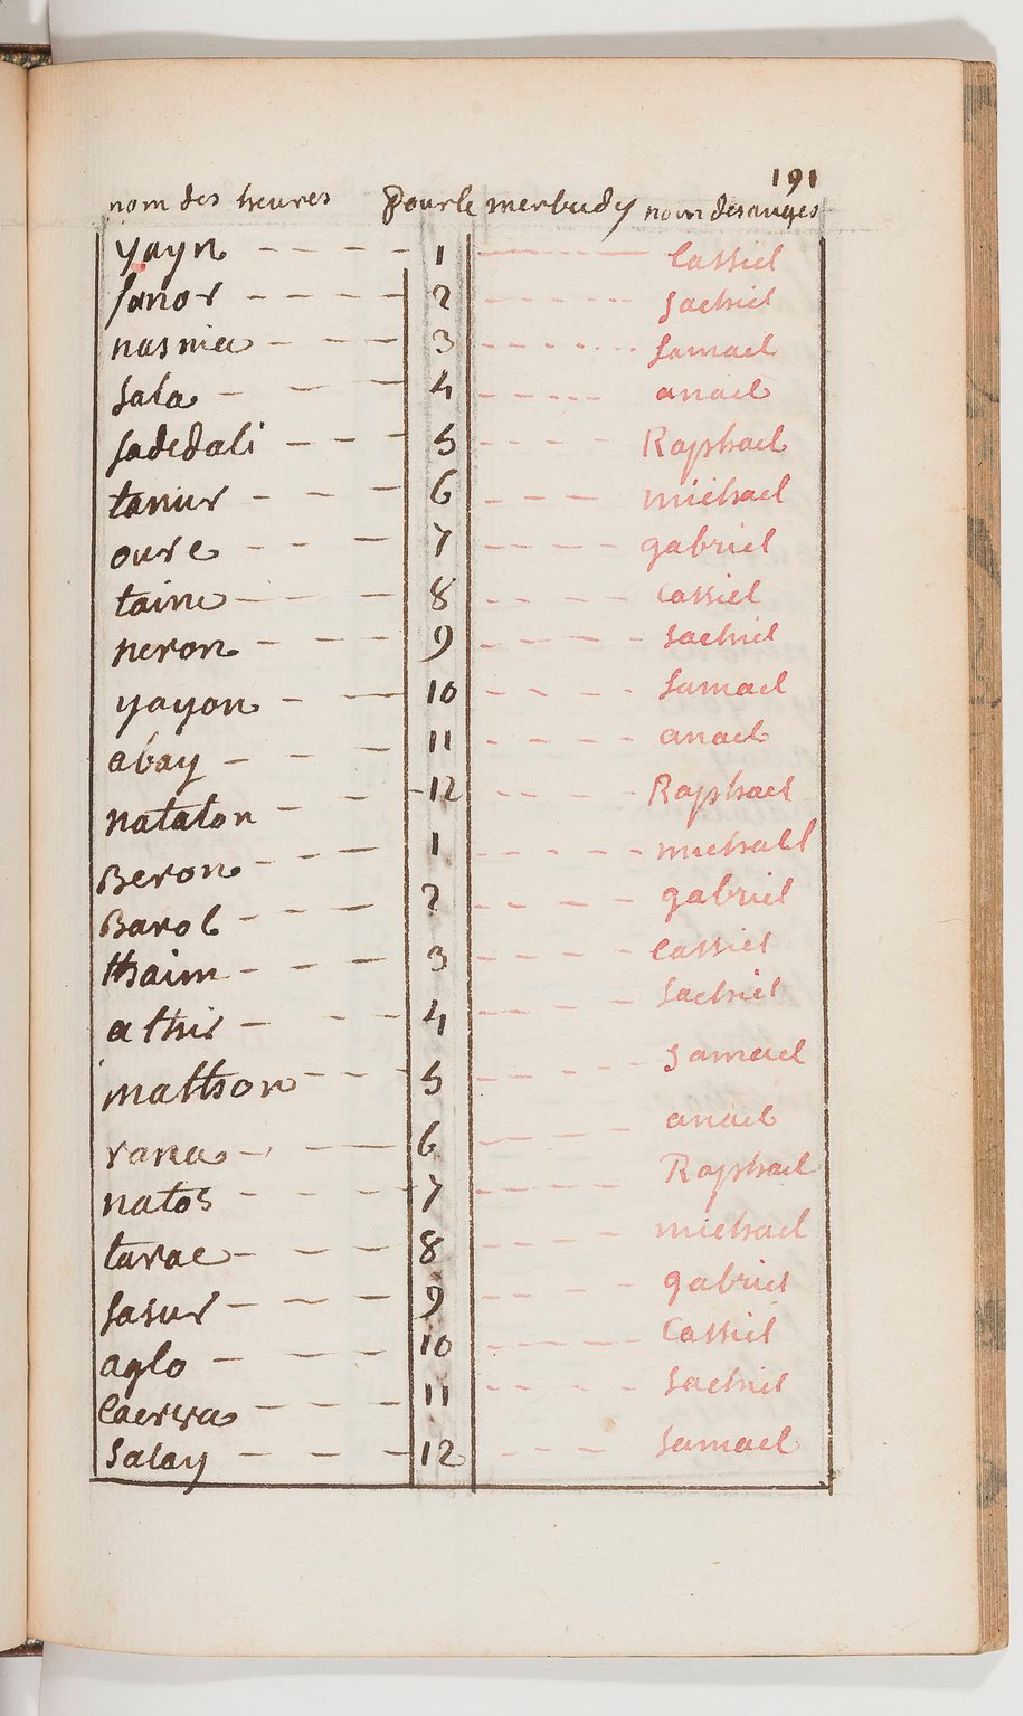 191
nom des heures pour le merbudy nom des anges
yayn 1 Cassiel
sanor 2 sachiel
nasnia 3 samael
sala 4 anael
sadedali 5 Raphael
tamur 6 michael
oure 7 gabriel
taine 8 cassiel
neron 9 sachiel
yayon 10 samael
abay 11 anael
nataton 12 Raphael
Beron 1 michaël
Barol 2 gabriel
thaim 3 cassiel
athir 4 sachiel
mathon 5 samael
rana 6 anael
natos 7 Raphael
tarae 8 michael
sasur 9 gabriel
aglo 10 Cassiel
Caerra 11 sachiel
salay 12 samael